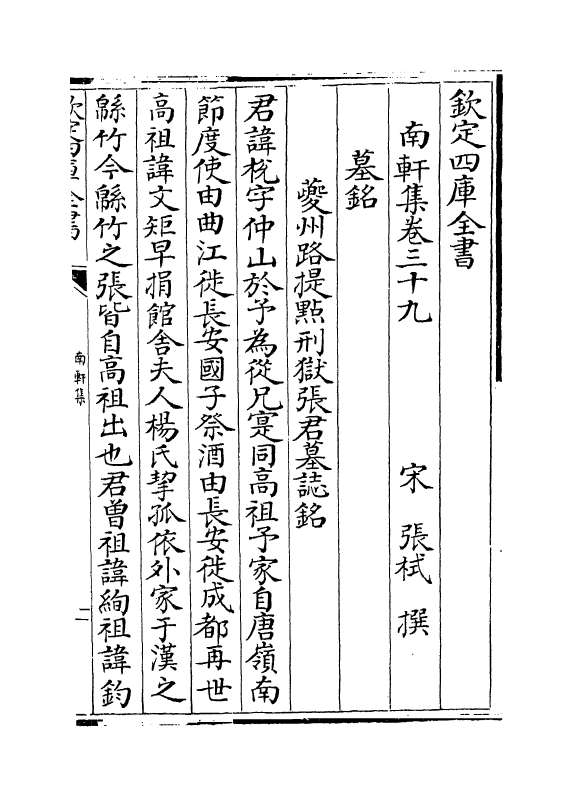 欽定四庫全書
南軒集卷三十九
宋 張栻 撰
墓銘
夔州路提點刑獄張君墓誌銘
君諱梲字仲山於予為從兄寔同高祖予家自唐嶺南
節度使由曲江徙長安國子祭酒由長安徙成都再世
高祖諱文矩早捐館舍夫人楊氏挈孤依外家于漢之
緜竹今緜竹之張皆自高祖出也君曽祖諱絢祖諱鈞
欽定四庫全書
南軒集